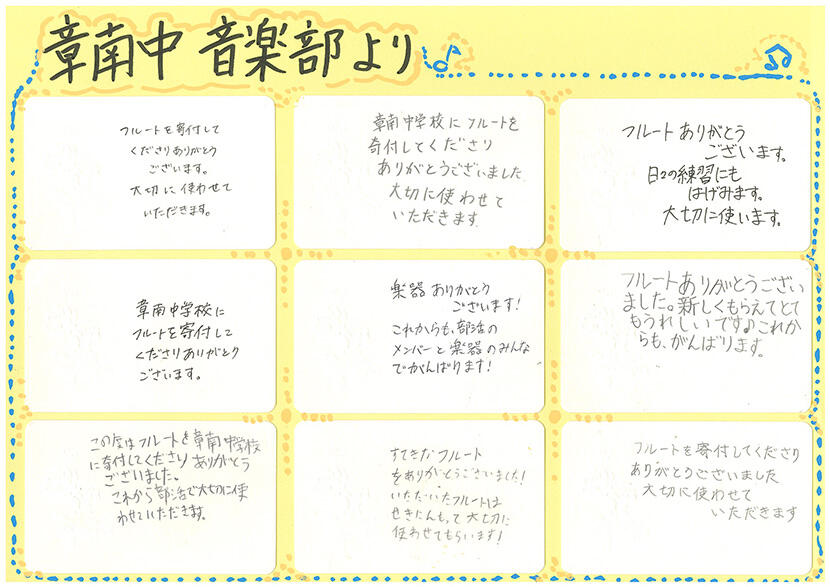 章南中 音楽部より
フルートを寄付して
くださりありがとう
ございます。
大切に使わせて
いただきます。
章南中学校にフルートを
寄付してくださり
ありがとうございました
大切に使わせて
いただきます
フルートありがとう
ございます。
日々の練習にも
はげみます。
大切に使います。
章南中学校に
フルートを寄付して
くださりありがとう
ございます。
楽器ありがとう
ございます!
これからも、部活の
メンバーと楽器のみんな
でがんばります!
フルートありがとうござい
ました。新しくもらえてとて
もうれしいです♪これか
らも、がんばります。
この度はフルートを章南中学校
に寄付してくださりありがとう
ございました。
これから部活で大切に使
わせていただきます。
すてきなフルート
をありがとうございました!
いただいたフルートは
せきにんもって大切に
使わせてもらいます!
フルートを寄付してくださり
ありがとうございました
大切に使わせて
いただきます